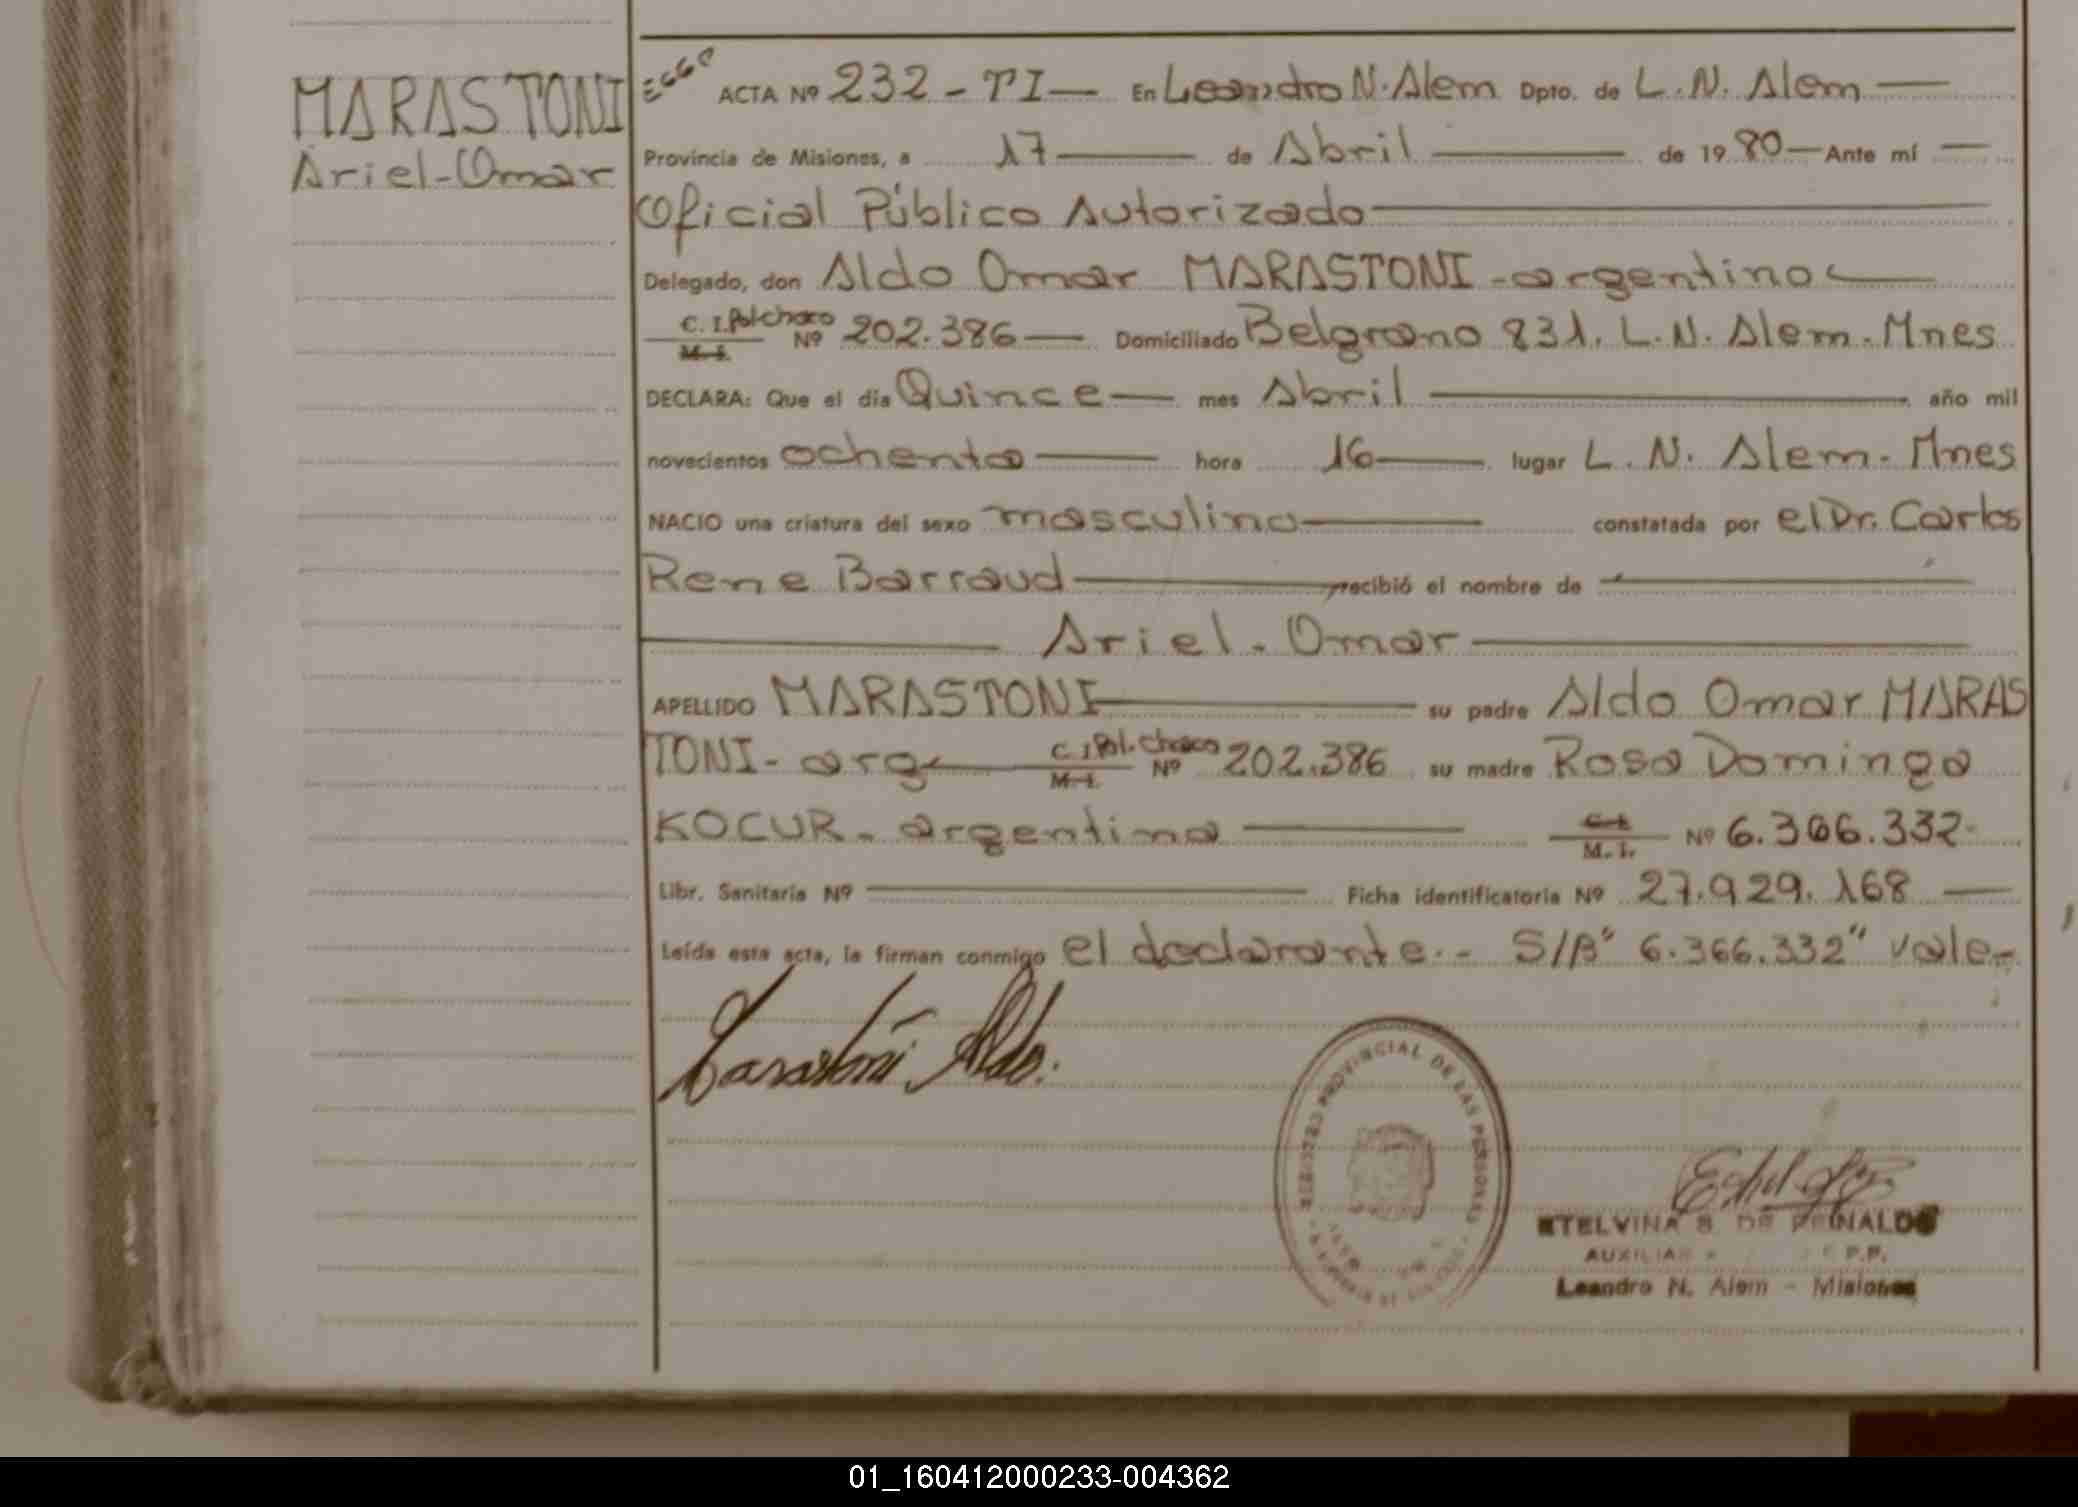 MARASTONI
Ariel-Omar
ACTA Nº 232 - TI — En Leandro N. Alem Dpto. de L. N. Alem —
Provincia de Misiones, a 17 — de Abril — de 1980 — Ante mí —
Oficial Público Autorizado —
Delegado, don Aldo Omar MARASTONI - argentino —
C. I. Pol chaco
M. I. Nº 202.386 — Domiciliado Belgrano 831. L. N. Alem. Mnes
DECLARA: Que el día Quince — mes Abril — año mil
novecientos ochenta — hora 16 — lugar L. N. Alem. Mnes
NACIO una criatura del sexo masculino — constatada por el Dr. Carlos
Rene Barraud — recibió el nombre de —
— Ariel - Omar —
APELLIDO MARASTONI — su padre Aldo Omar MARAS
TONI - arg — C. I. Pol. Chaco
M. I. Nº 202.386 su madre Rosa Dominga
KOCUR - argentina — C. I.
M. I. Nº 6.366.332
Libr. Sanitaria Nº — Ficha identificatoria Nº 27.929.168 —
Leída esta acta, la firman conmigo el declarante. - S/B "6.366.332" vale -
Marastoni Aldo.
REGISTRO PROVINCIAL DE LAS PERSONAS
ETELVINA S. DE REINALDO
AUXILIAR P.P.
Leandro N. Alem - Misiones
01_160412000233-004362